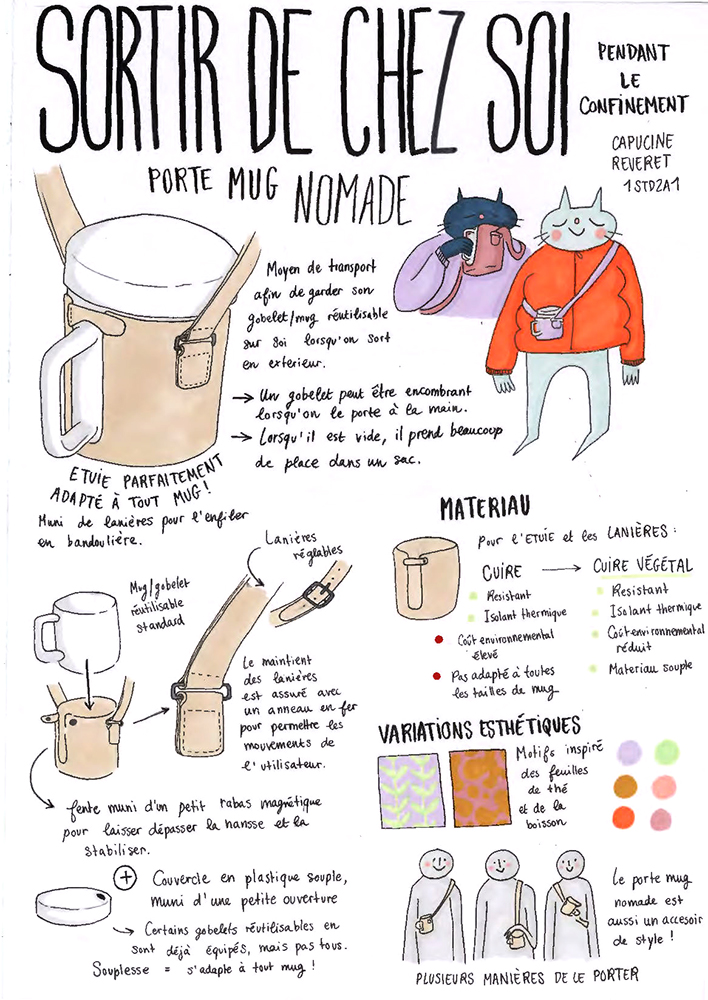 SORTIR DE CHEZ SOI
PENDANT
LE
CONFINEMENT
CAPUCINE
REVERET
1STD2A1
PORTE MUG NOMADE
Moyen de transport
afin de garder son
gobelet/mug réutilisable
sur soi lorsqu'on sort
en exterieur.
→ Un gobelet peut être encombrant
lorsqu'on le porte à la main.
→ Lorsqu'il est vide, il prend beaucoup
de place dans un sac.
ETUIE PARFAITEMENT
ADAPTÉ À TOUT MUG!
Muni de lanières pour l'enfiler
en bandoulière.
Lanières
réglables
Mug/gobelet
réutilisable
standard
Le maintient
des lanières
est assuré avec
un anneau en fer
pour permettre les
mouvements de
l'utilisateur.
fente muni d'un petit rabas magnétique
pour laisser dépasser la hansse et la
stabiliser.
+ Couvercle en plastique souple,
muni d'une petite ouverture
Certains gobelets réutilisables en
sont déjà équipés, mais pas tous.
Souplesse = s'adapte à tout mug!
MATERIAU
Pour l'ETUIE et les LANIÈRES:
CUIRE → CUIRE VÉGÉTAL
Resistant
Isolant thermique
Coût environnemental
élevé
Pas adapté à toutes
les tailles de mug
Resistant
Isolant thermique
Coût environnemental
réduit
Materiau souple
VARIATIONS ESTHÉTIQUES
Motifs inspiré
des feuilles
de thé
et de la
boisson
Le porte mug
nomade est
aussi un accesoir
de style!
PLUSIEURS MANIÈRES DE LE PORTER